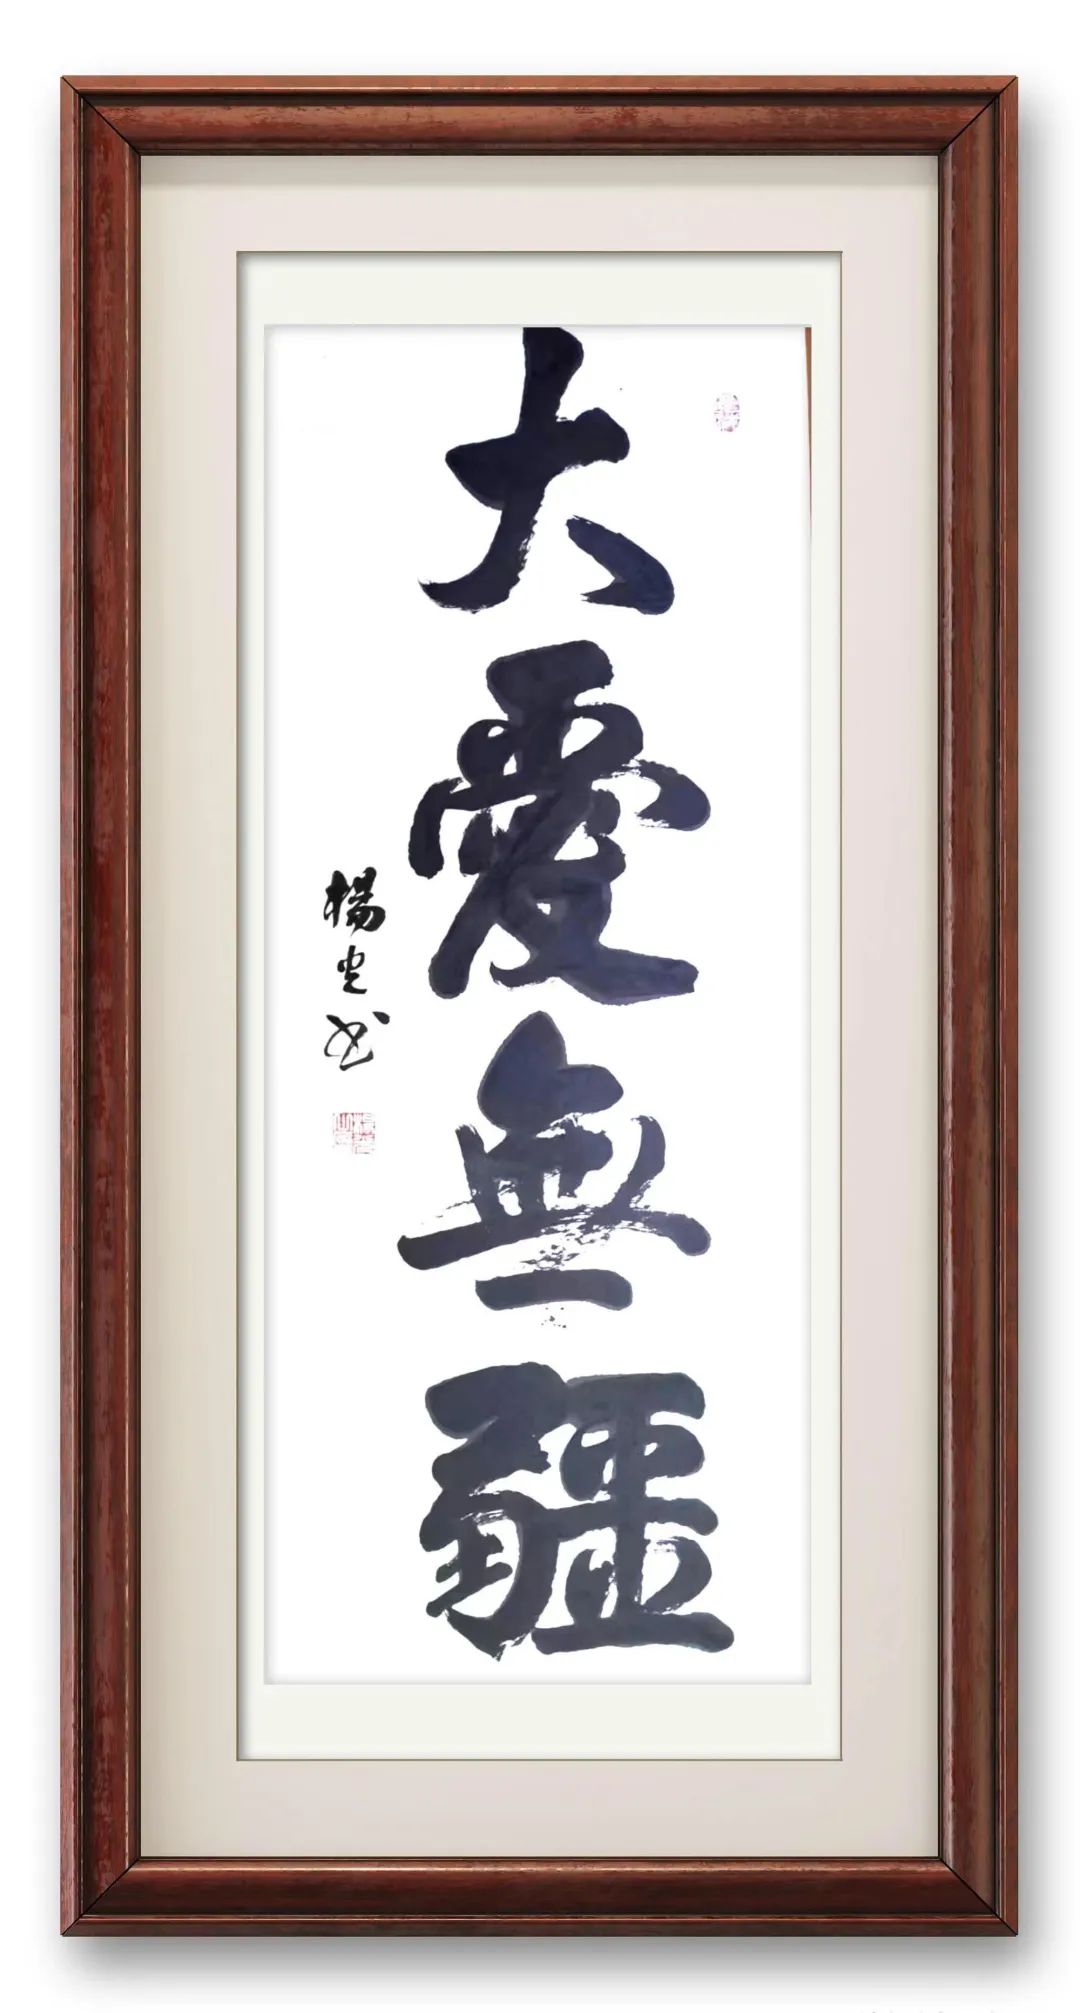 大愛無疆
楊光书